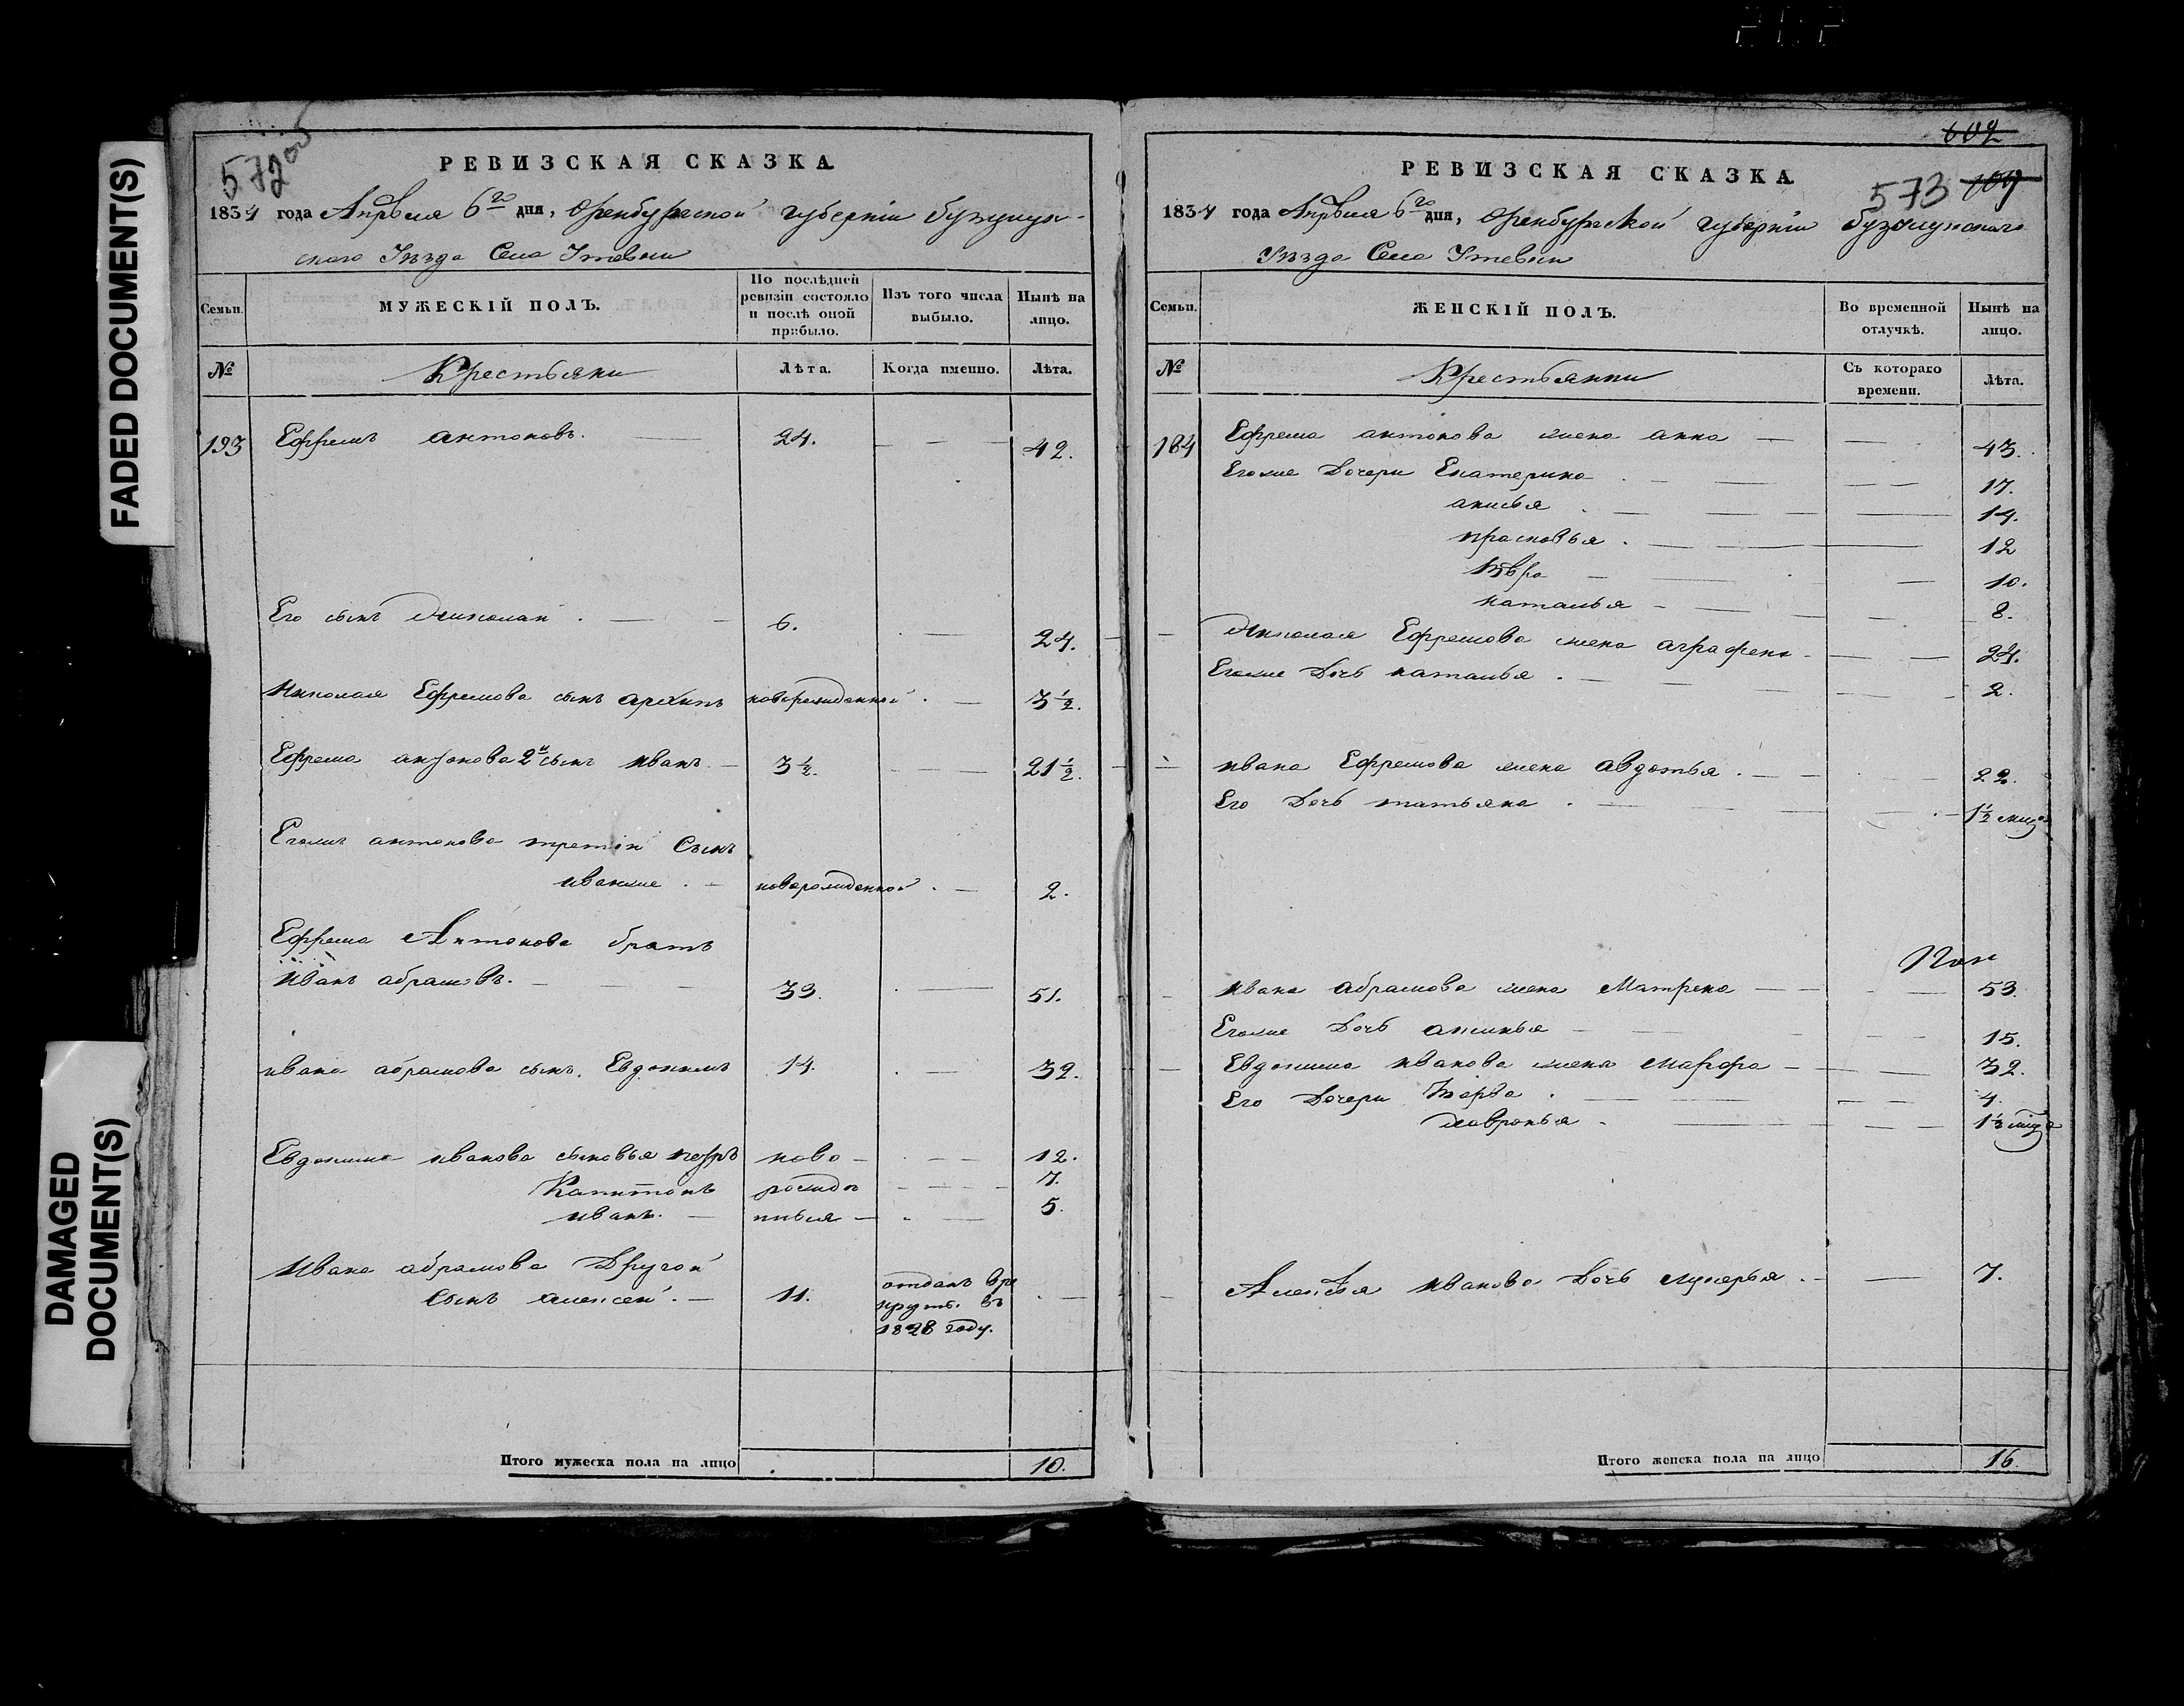 FADED DOCUMENT(S)
DAMAGED
DOCUMENT(S)
572
РЕВИЗСКАЯ СКАЗКА
1834 года Апрѣля 6го дня, Оренбургской губерніи бузулук-
скаго Уѣзда Села Утевки
Семьи.
МУЖЕСКІЙ ПОЛЪ.
По послѣдней ревизіи состояло и послѣ оной прибыло.
Изъ того числа выбыло.
Нынѣ на лицо.
№
Крестьяни
Лѣта.
Когда именно.
Лѣта.
193 Ефремъ антоновъ. 24. 42.
Его сынъ Николай. 6. 24.
Николая Ефремова сынъ архипъ новорожденной. 3½.
Ефрема антонова 2й сынъ иванъ 3½. 21½.
Егожъ антонова третій Сынъ
иванже. новорожденной. 2.
Ефрема Антонова братъ
Иванъ абрамовъ. 33. 51.
ивана абрамова сынъ. Евдокимъ 14. 32.
Евдокима иванова сыновья петръ ново- 12.
Капитонъ рожде 7.
иванъ. ныя 5.
Ивана абрамова Другой отданъ врe
сынъ алексей. 11. крутъ. въ
1828 году.
Итого мужеска пола на лицо 10.
602
573 109
РЕВИЗСКАЯ СКАЗКА
1834 года Апрѣля 6го дня, Оренбургской губерніи бузулукскаго
Уѣзда Села Утевки
Семьи.
ЖЕНСКІЙ ПОЛЪ.
Во временной отлучкѣ.
Нынѣ на лицо.
№
Крестьянки
Съ котораго времени.
Лѣта.
184 Ефрема антонова жена анна 43.
Егоже Дочери Екатерина 17.
анисья 14.
прасковья 12
10.
наталья 8.
Николая Ефремова жена аграфена 24.
Егоже Дочь наталья. 2.
ивана Ефремова жена авдотья. 22.
Его Дочь татьяна. 1½ мѣс
Ивана абрамова жена Матрена 53.
Егоже Дочь аксинья 15.
Евдокима иванова жена марфа 32.
Его Дочери 4.
Февронья.
Алексѣя иванова Дочь лукерья. 7.
Итого женска пола на лицо 16.